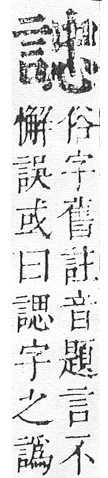 俗字舊註音題言不
懈誤或曰諰字之譌